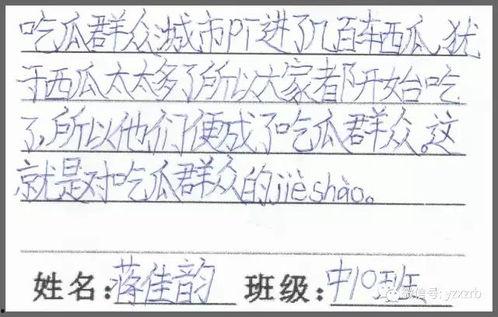 吃瓜群众城市PT进了几百车西瓜,犹
于西瓜太太多了所以大家都开始吃
了,所以他们便成了吃瓜群众。这
就是对吃瓜群众的jièshào。
姓名:蒋佳韵 班级:中10班
微信号: yzxzrb